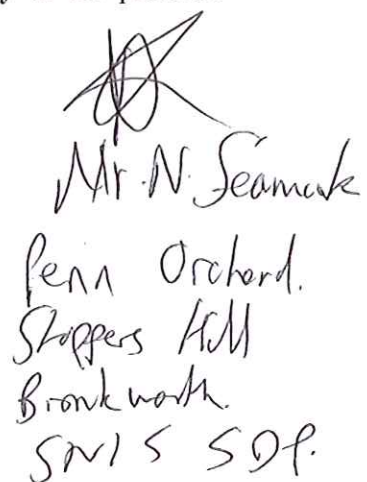 Mr. N. Seamark
Penn Orchard.
Stoppers Hill
Brinkworth.
SN15 5DP.